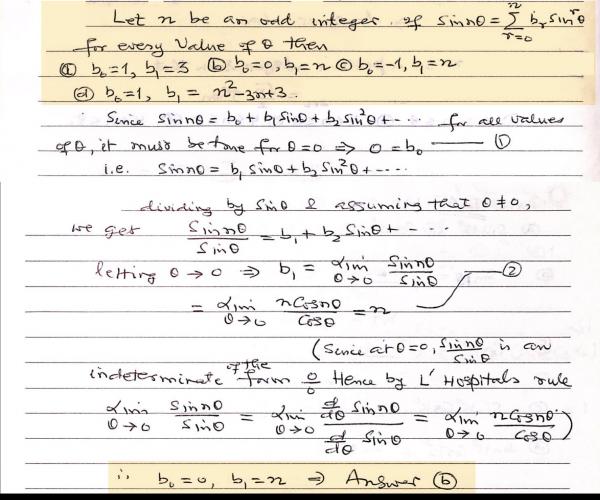 Let n be an odd integer. If sin nθ = Σ_{r=0}^{n} b_r sin^r θ
for every value of θ then
(a) b₀=1, b₁=3 (b) b₀=0, b₁=n (c) b₀=-1, b₁=n
(d) b₀=1, b₁ = n²-3n+3.
∵ Since sin nθ = b₀ + b₁ sinθ + b₂ sin²θ + ---- for all values
of θ, it must be true for θ=0 ⇒ 0=b₀ —— ①
i.e. sin nθ = b₁ sinθ + b₂ sin²θ + ----
dividing by sinθ & assuming that θ≠0,
we get sin nθ / sinθ = b₁ + b₂ sinθ + - - -
letting θ→0 ⇒ b₁ = Lim_{θ→0} sin nθ / sinθ —— ②
= Lim_{θ→0} n cos nθ / cosθ = n
(Since at θ=0, sin nθ / sinθ is an
indeterminate of the form 0/0 Hence by L' Hospitals rule
Lim_{θ→0} sin nθ / sinθ = Lim_{θ→0} (d/dθ sin nθ) / (d/dθ sinθ) = Lim_{θ→0} n cos nθ / cosθ)
∴ b₀=0, b₁=n ⇒ Answer (b)